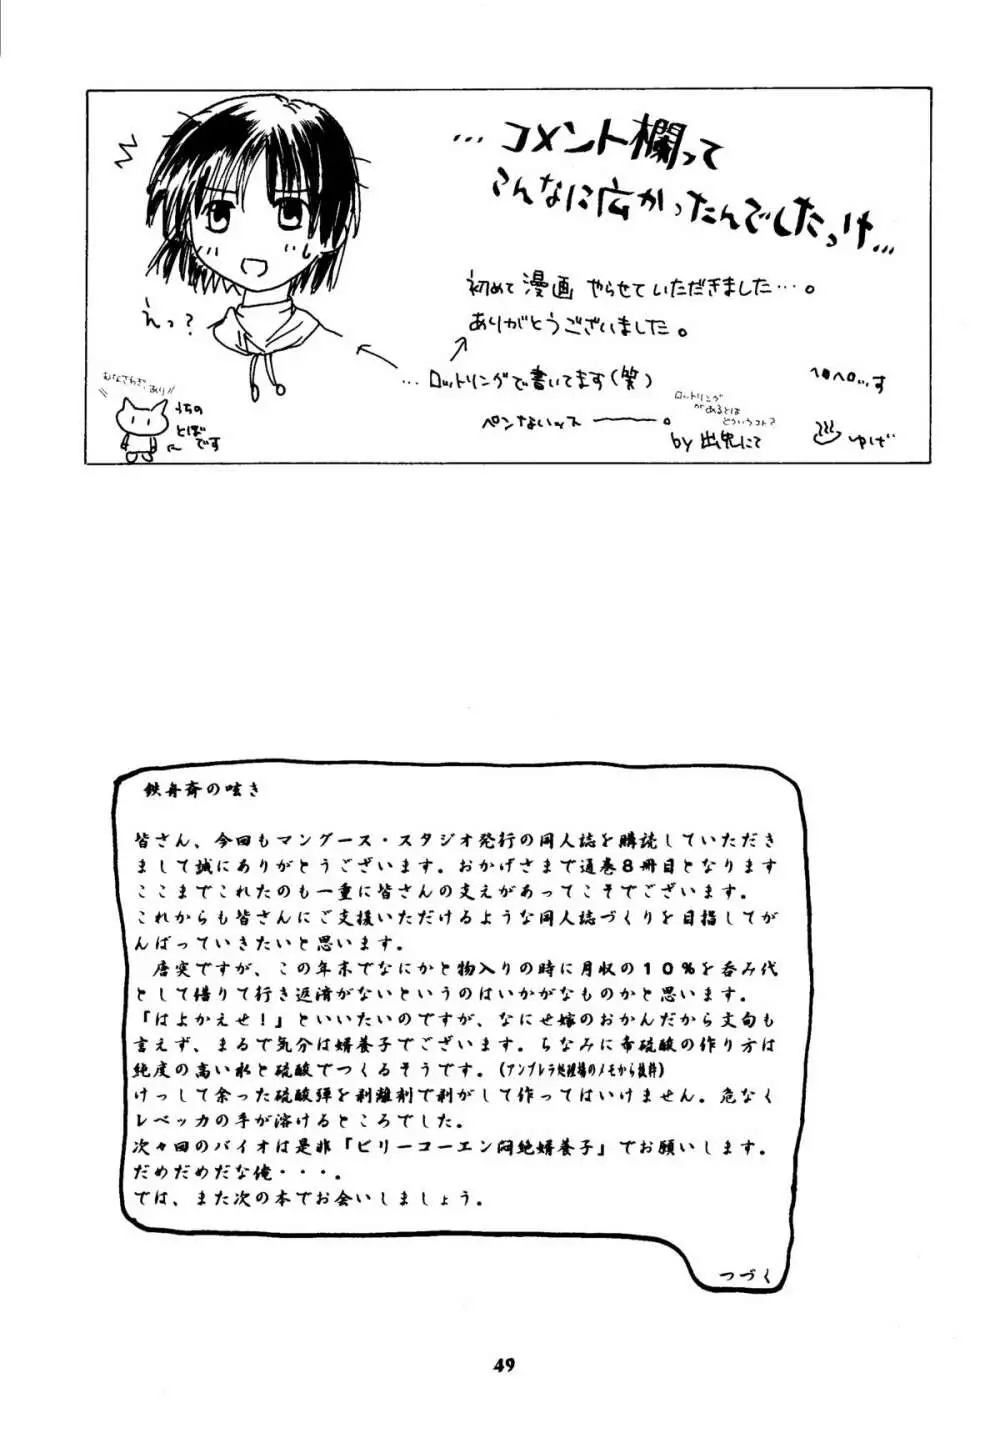 …コメント欄って
こんなに広かったんでしたっけ…
初めて漫画やらせていただきました…。
ありがとうございました。
えっ?
…ロットリングで書いてます(笑)
ペンないッス———。
ロットリング
があるとは
どういうコト?
ヘロヘロ…す
by 出兎にて
ゆげ
むなさわぎ、あり!!
うちの
とぼ
です
鉄舟斎の呟き
皆さん、今回もマングース・スタジオ発行の同人誌を購読していただき
まして誠にありがとうございます。おかげさまで通巻8冊目となります
ここまでこれたのも一重に皆さんの支えがあってこそでございます。
これからも皆さんにご支援いただけるような同人誌づくりを目指してが
んばっていきたいと思います。
唐突ですが、この年末でなにかと物入りの時に月収の10%を呑み代
として借りて行き返済がないというのはいかがなものかと思います。
『はよかえせ!』といいたいのですが、なにせ嫁のおかんだから文句も
言えず、まるで気分は婿養子でございます。ちなみに希硫酸の作り方は
純度の高い水と硫酸でつくるそうです。(アンブレラ処理場のメモから抜粋)
けっして余った硫酸弾を剥離剤で剥がして作ってはいけません。危なく
レベッカの手が溶けるところでした。
次々回のバイオは是非『ビリーコーエン悶絶婿養子』でお願いします。
だめだめだな俺・・・。
では、また次の本でお会いしましょう。
つづく
49